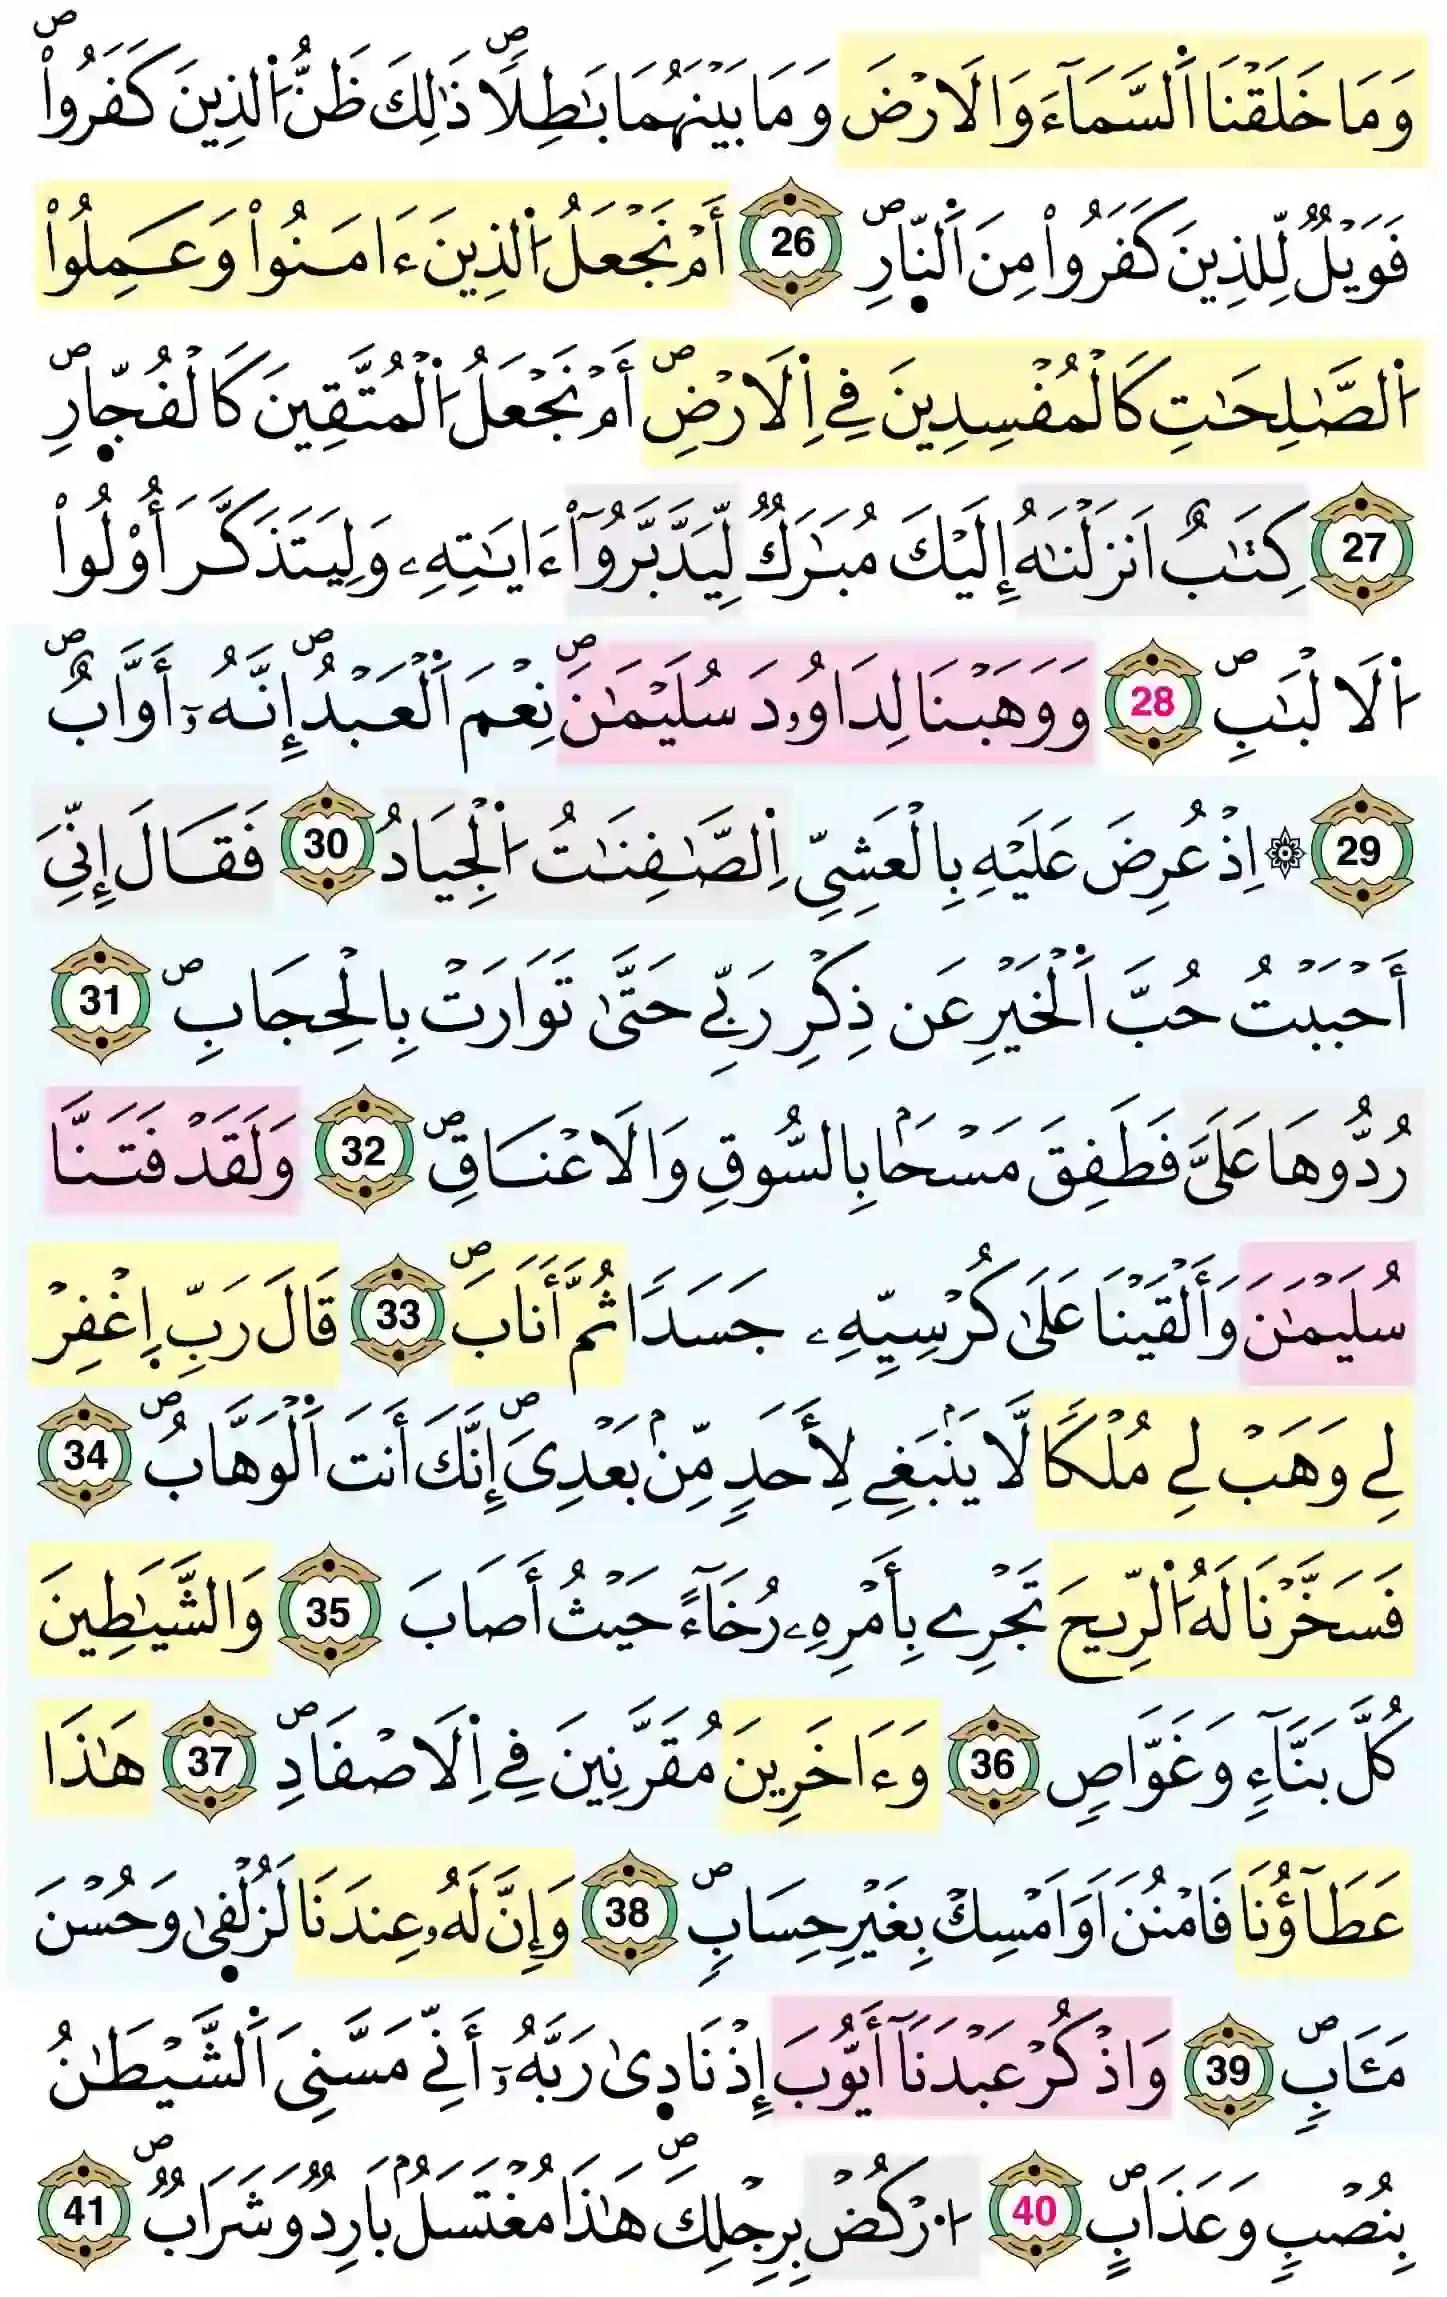 وَمَا خَلَقْنَا اَ۬لسَّمَآءَ وَالَارْضَ وَمَا بَيْنَهُمَا بَٰطِلاٗۖ ذَٰلِكَ ظَنُّ اُ۬لذِينَ كَفَرُواْۖ
فَوَيْلٞ لِّلذِينَ كَفَرُواْ مِنَ اَ۬لنّ۪ارِۖ 26 أَمْ نَجْعَلُ اُ۬لذِينَ ءَامَنُواْ وَعَمِلُواْ
اُ۬لصَّٰلِحَٰتِ كَالْمُفْسِدِينَ فِے اِ۬لَارْضِۖ أَمْ نَجْعَلُ اُ۬لْمُتَّقِينَ كَالْفُجّ۪ارِۖ
27 كِتَٰبٌ اَنزَلْنَٰهُ إِلَيْكَ مُبَٰرَكٞ لِّيَدَّبَّرُوٓاْ ءَايَٰتِهِۦ وَلِيَتَذَكَّرَ أُوْلُواْ
اُ۬لَالْبَٰبِۖ 28 وَوَهَبْنَا لِدَاوُۥدَ سُلَيْمَٰنَۖ نِعْمَ اَ۬لْعَبْدُۖ إِنَّهُۥٓ أَوَّابٌۖ
29 ۞ اِذْ عُرِضَ عَلَيْهِ بِالْعَشِيِّ اِ۬لصَّٰفِنَٰتُ اُ۬لْجِيَادُ 30 فَقَالَ إِنِّيَ
أَحْبَبْتُ حُبَّ اَ۬لْخَيْرِ عَن ذِكْرِ رَبِّے حَتَّىٰ تَوَارَتْ بِالْحِجَابِۖ 31
رُدُّوهَا عَلَيَّ فَطَفِقَ مَسْحاَۢ بِالسُّوقِ وَالَاعْنَاقِۖ 32 وَلَقَدْ فَتَنَّا
سُلَيْمَٰنَ وَأَلْقَيْنَا عَلَىٰ كُرْسِيِّهِۦ جَسَداٗ ثُمَّ أَنَابَۖ 33 قَالَ رَبِّ اِ۪غْفِرْ
لِے وَهَبْ لِے مُلْكاٗ لَّا يَنۢبَغِے لِأَحَدٖ مِّنۢ بَعْدِيَۖ إِنَّكَ أَنتَ اَ۬لْوَهَّابُۖ 34
فَسَخَّرْنَا لَهُ اُ۬لرِّيحَ تَجْرِے بِأَمْرِهِۦ رُخَآءً حَيْثُ أَصَابَ 35 وَالشَّيَٰطِينَ
كُلَّ بَنَّآءٖ وَغَوَّاصٖ 36 وَءَاخَرِينَ مُقَرَّنِينَ فِے اِ۬لَاصْفَادِۖ 37 هَٰذَا
عَطَآؤُنَا فَامْنُنَ اَوَ اَمْسِكْ بِغَيْرِ حِسَابٖۖ 38 وَإِنَّ لَهُۥ عِندَنَا لَزُلْف۪ىٰ وَحُسْنَ
مَـَٔابٖۖ 39 وَاذْكُرْ عَبْدَنَآ أَيُّوبَ إِذْ نَاد۪ىٰ رَبَّهُۥٓ أَنِّے مَسَّنِيَ اَ۬لشَّيْطَٰنُ
بِنُصْبٖ وَعَذَابٍۖ 40 اُ۟رْكُضْ بِرِجْلِكَۖ هَٰذَا مُغْتَسَلُۢ بَارِدٞ وَشَرَابٞۖ 41